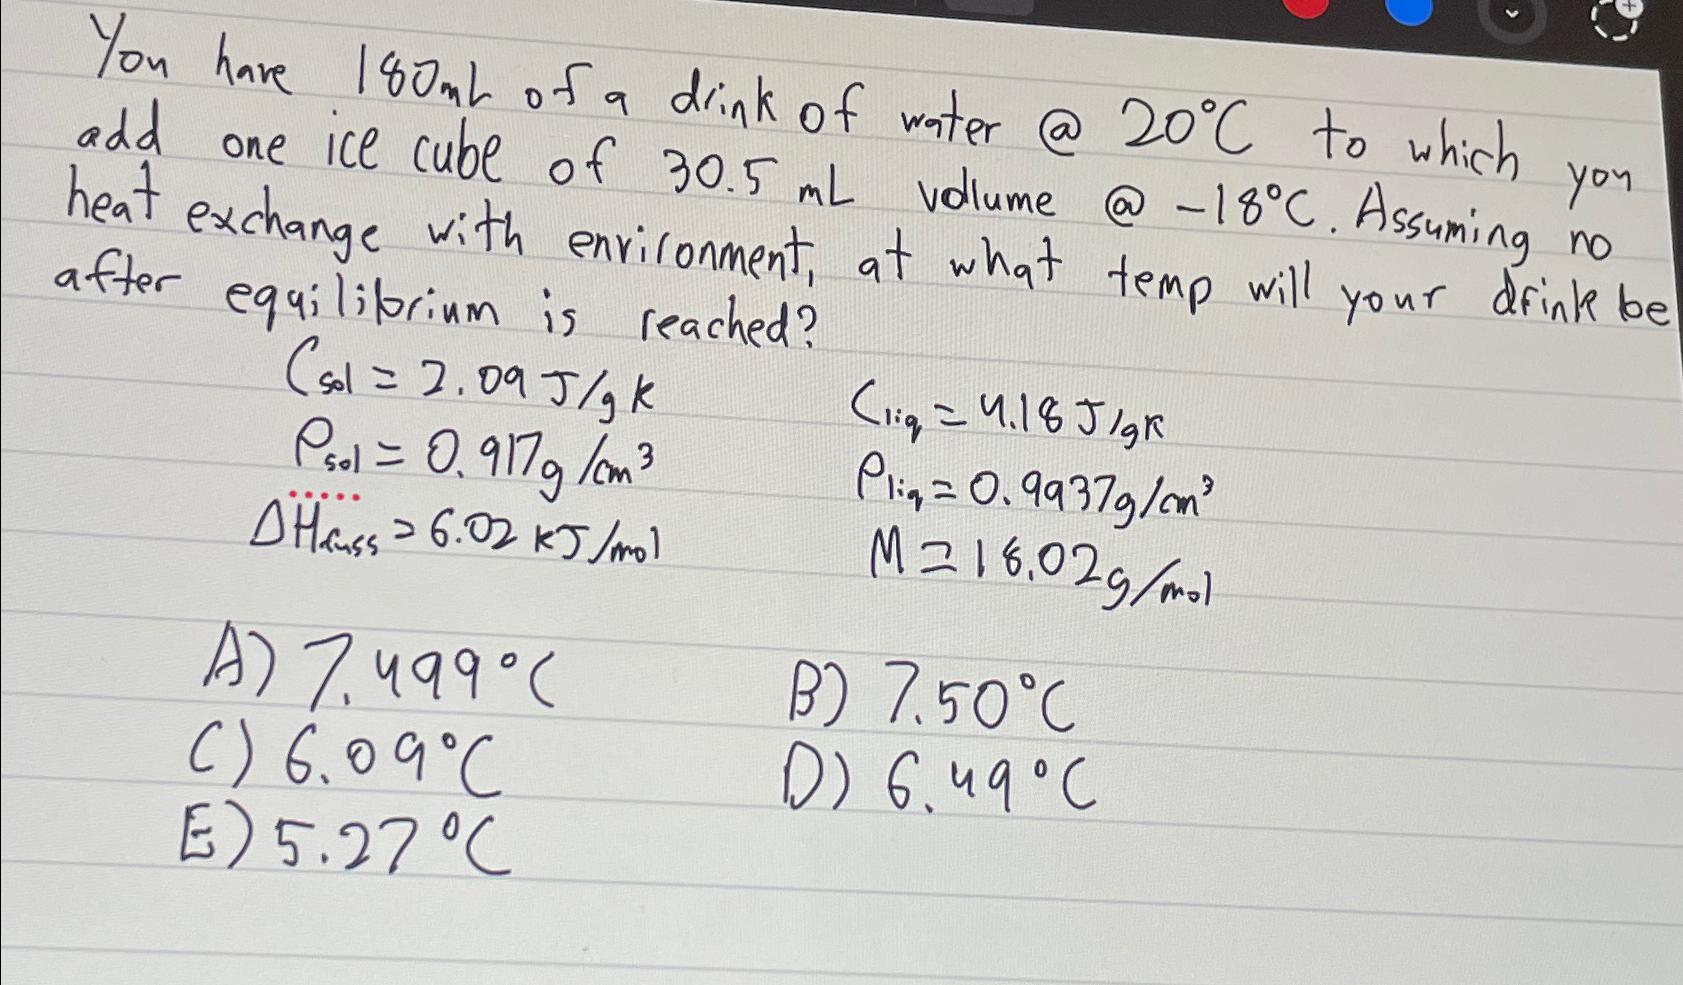 You have 180mL of a drink of water @ 20°C to which you
add one ice cube of 30.5 mL volume @ -18°C. Assuming no
heat exchange with environment, at what temp will your drink be
after equilibrium is reached?
Csol = 2.09 J/gK Cliq = 4.18 J/gK
ρsol = 0.917g/cm³ ρliq = 0.9937g/cm³
ΔHfuss = 6.02 kJ/mol M = 18.02g/mol
A) 7.499°C B) 7.50°C
C) 6.09°C D) 6.49°C
E) 5.27°C